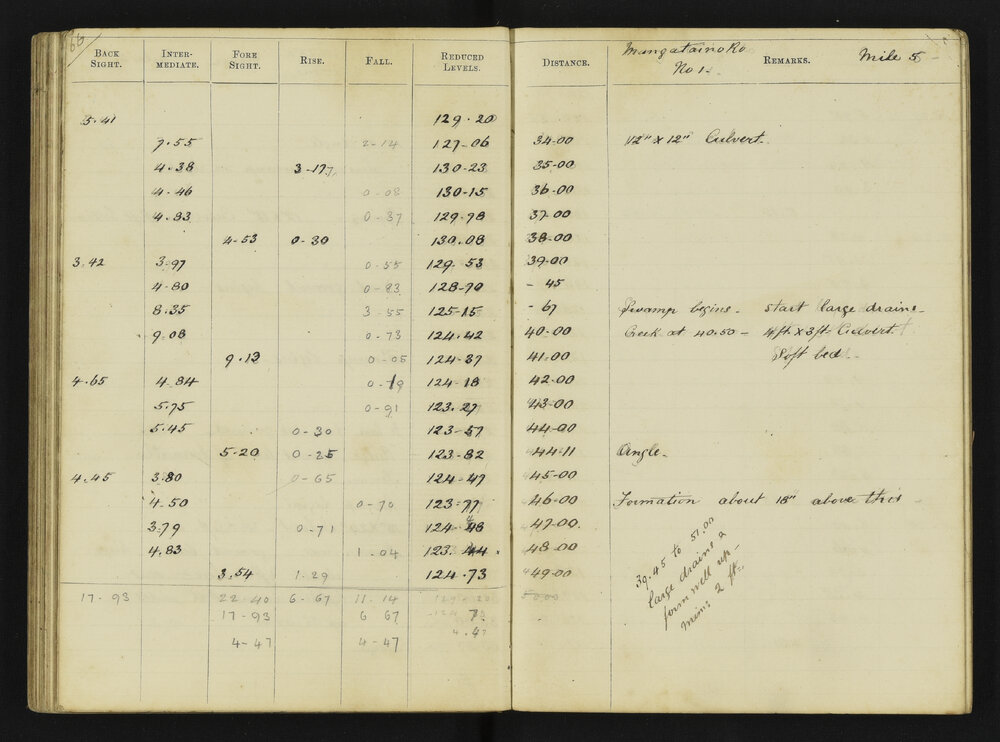 66
BACK SIGHT. INTER-MEDIATE. FORE SIGHT. RISE. FALL. REDUCED LEVELS. DISTANCE. Mangatainoko No 1. REMARKS. Mile 5
5.41 129.20
7.55 2-14 127-06 34-00 12" x 12" Culvert.
4.38 3-17 130-23 35-00
4-46 0-08 130-15 36-00
4.83 0-37 129-78 37-00
4-53 0-30 130.08 38-00
3.42 3-97 0-55 129-53 39-00
4-80 0-83 128-70 - 45
8.35 3-55 125-15 - 67 Swamp begins - start large drains -
9.08 0-73 124.42 40-00 Creek at 40.50 - 4ft x 3ft Culvert
9.13 0-05 124-37 41-00 Soft bed -
4.65 4-84 0-19 124-18 42-00
5.75 0-91 123.27 43-00
5.45 0-30 123-57 44-00
5-20 0-25 123-82 44-11 Angle -
4.45 3.80 0-65 124-47 45-00
4-50 0-70 123-77 46-00 Formation about 18" above this
3-79 0-71 124-48 47-00
4.83 1.04 123.44 48-00
3.54 1.29 124.73 49-00
39.45 to 51.00
large drains &
form well up -
min: 2 ft.
17-93 22-40 6-67 11-14 129-20 50.00
17-93 6 67
4-47 4-47 4.47